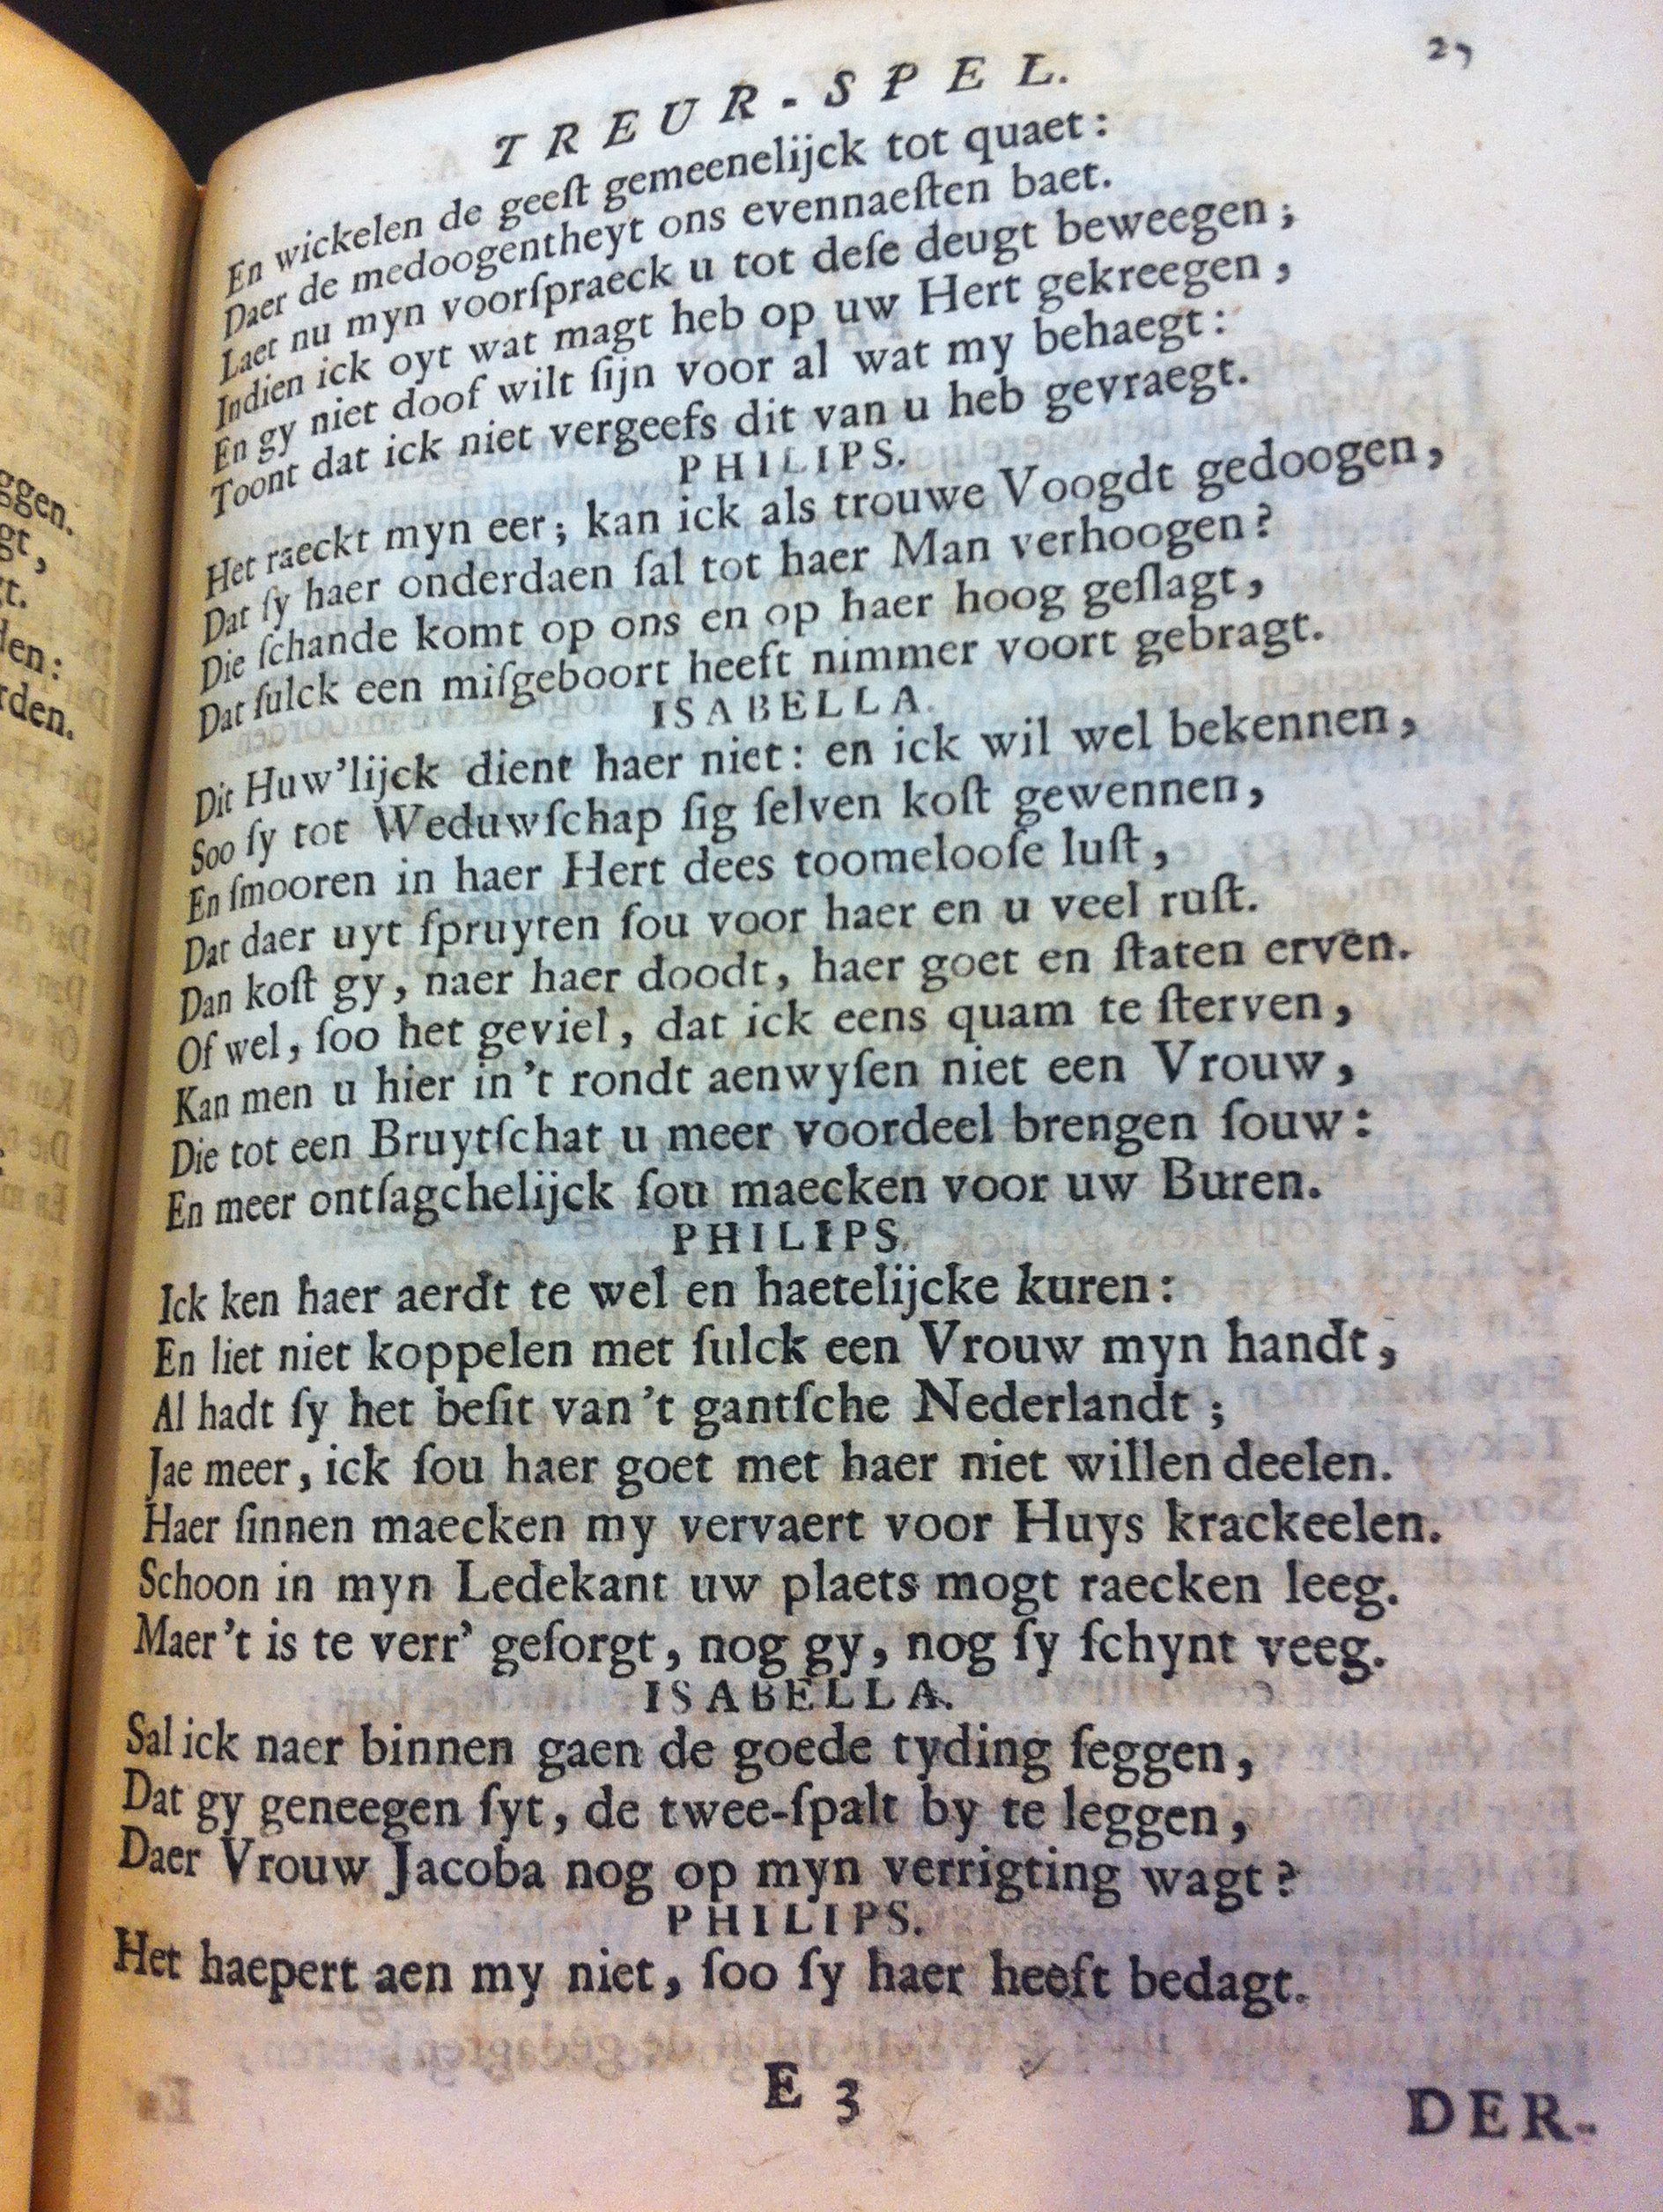 TREUR-SPEL. 2
En wickelen de geeſt gemeenelijck tot quaet:
Daer de medoogentheyt ons evennaeſten baet.
Laet nu myn voorſpraeck u tot deſe deugt beweegen;
Indien ick oyt wat magt heb op uw Hert gekreegen,
En gy niet doof wilt ſijn voor al wat my behaegt:
Toont dat ick niet vergeefs dit van u heb gevraegt.
PHILIPS.
Het raeckt myn eer; kan ick als trouwe Voogdt gedoogen,
Dat ſy haer onderdaen ſal tot haer Man verhoogen?
Die ſchande komt op ons en op haer hoog geſlagt,
Dat ſulck een miſgeboort heeft nimmer voort gebragt.
ISABELLA.
Dit Huw'lijck dient haer niet: en ick wil wel bekennen,
Soo ſy tot Weduwſchap ſig ſelven koſt gewennen,
En ſmooren in haer Hert dees toomelooſe luſt,
Dat daer uyt ſpruyten ſou voor haer en u veel ruſt.
Dan koſt gy, naer haer doodt, haer goet en ſtaten erven.
Of wel, ſoo het geviel, dat ick eens quam te ſterven,
Kan men u hier in't rondt aenwyſen niet een Vrouw,
Die tot een Bruytſchat u meer voordeel brengen ſouw:
En meer ontſagchelijck ſou maecken voor uw Buren.
PHILIPS.
Ick ken haer aerdt te wel en haetelijcke kuren:
En liet niet koppelen met ſulck een Vrouw myn handt,
Al hadt ſy het beſit van't gantſche Nederlandt;
Jae meer, ick ſou haer goet met haer niet willen deelen.
Haer ſinnen maecken my vervaert voor Huys krackeelen.
Schoon in myn Ledekant uw plaets mogt raecken leeg.
Maer't is te verr' geſorgt, nog gy, nog ſy ſchynt veeg.
ISABELLA.
Sal ick naer binnen gaen de goede tyding ſeggen,
Dat gy geneegen ſyt, de twee-ſpalt by te leggen,
Daer Vrouw Jacoba nog op myn verrigting wagt?
PHILIPS.
Het haepert aen my niet, ſoo ſy haer heeft bedagt.
E 3
DER-
ggen.
gt,
t.
den:
rden.